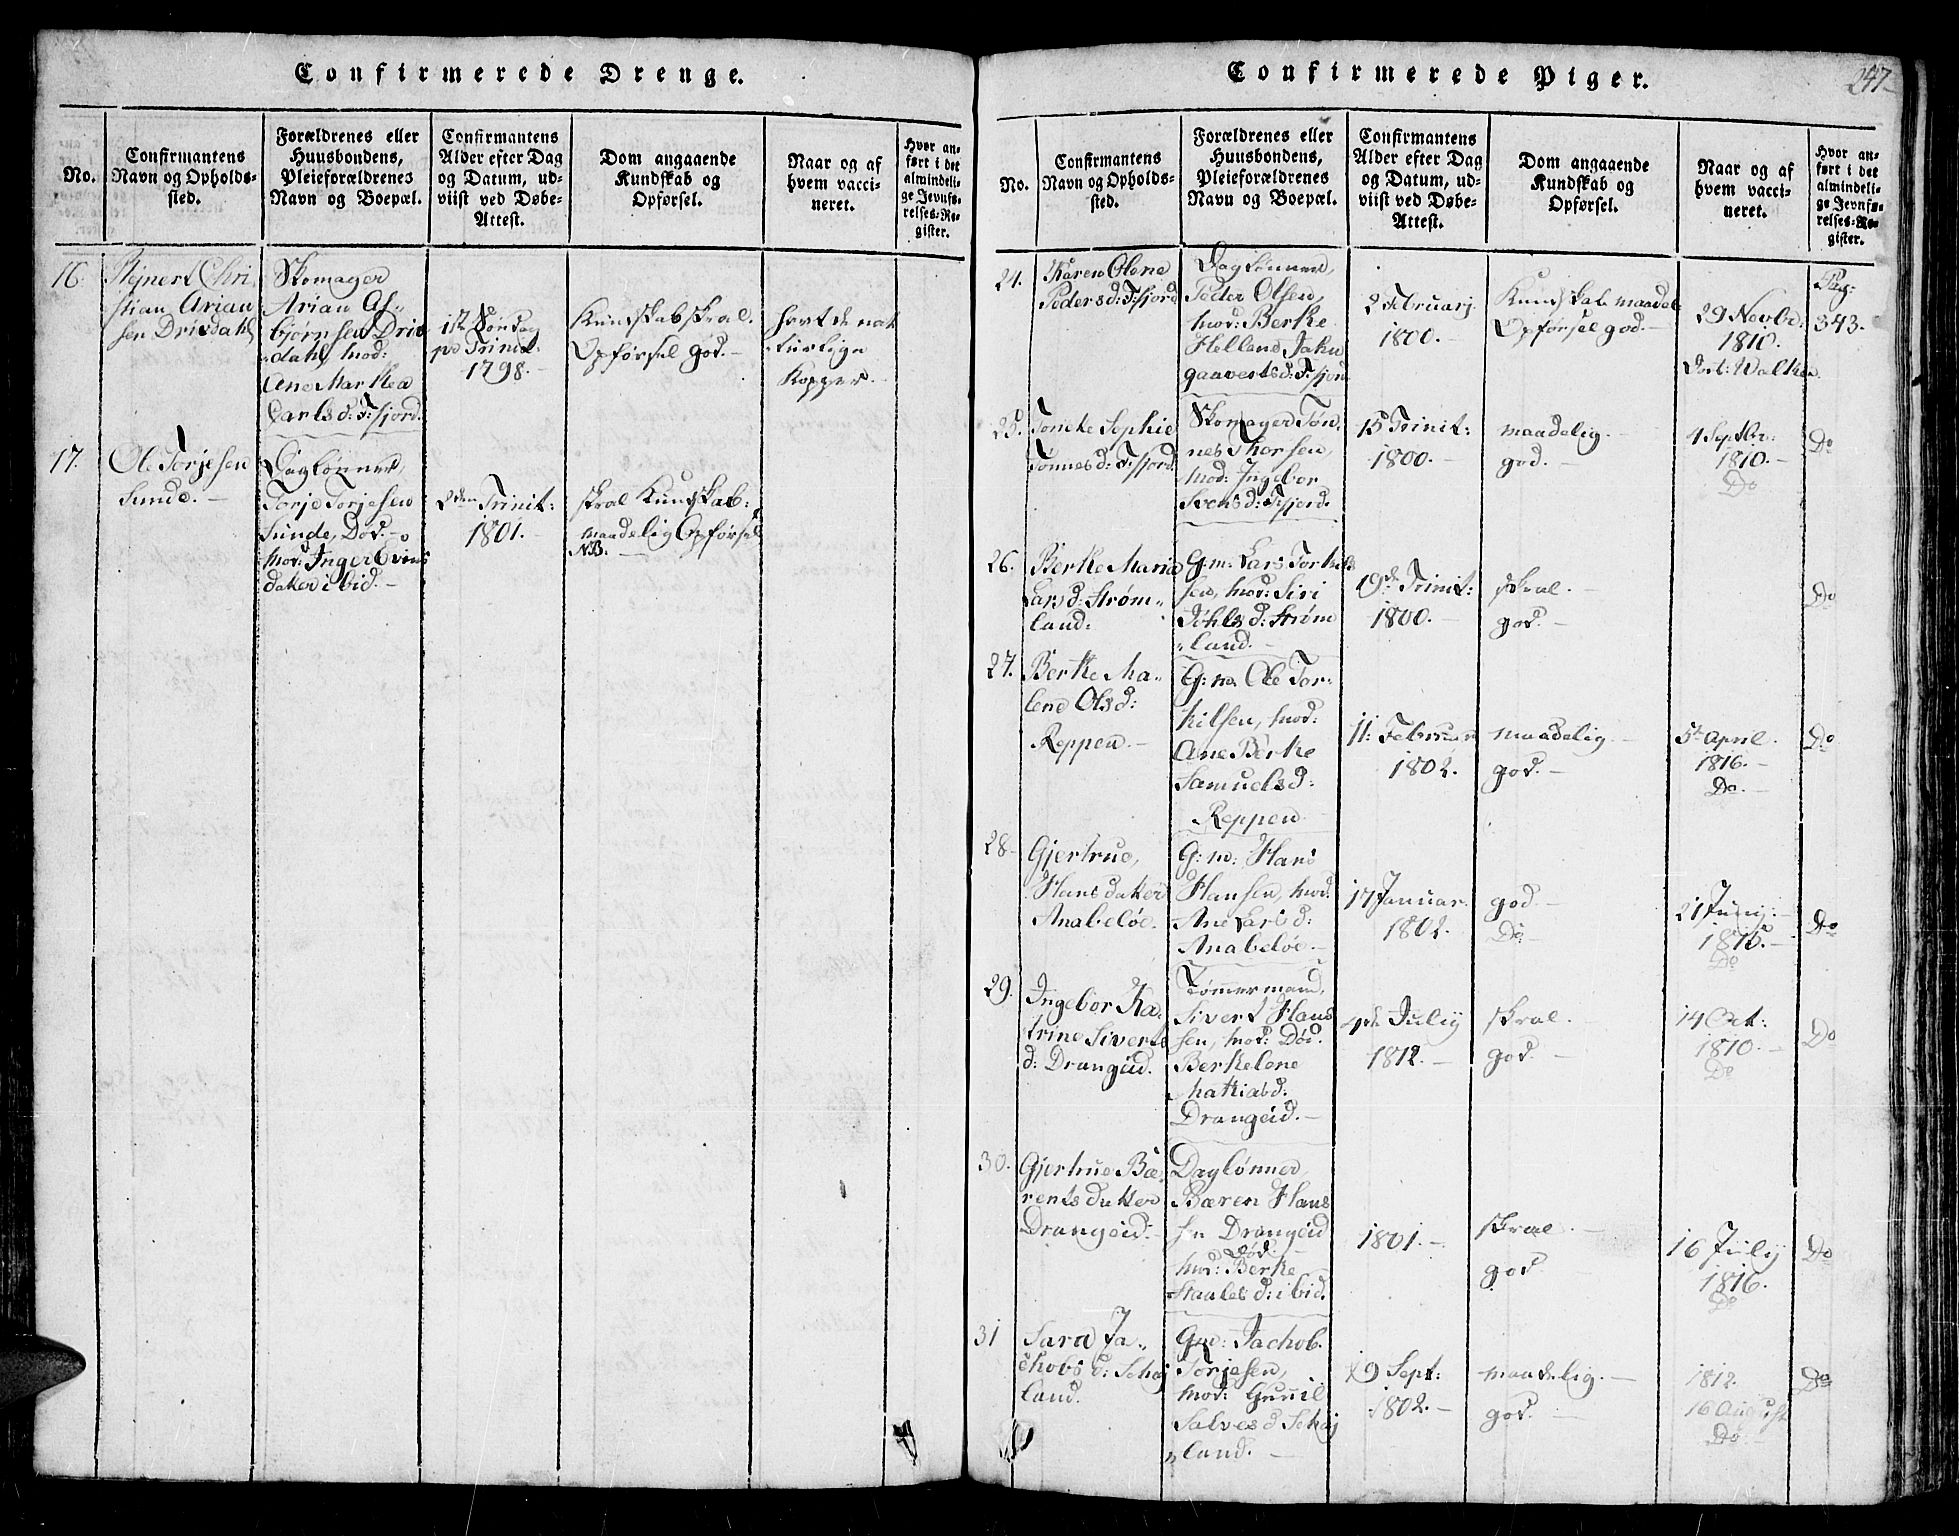 Confirmerede Drenge.
No.
Confirmantens
Navn og Opholds-
sted.
Forældrenes eller
Huusbondens,
Pleieforældrenes
Navn og Boepæl.
Confirmantens
Alder efter Dag
og Datum, ud-
viist ved Døbe-
Attest.
Dom angaaende
Kundskab og
Opførsel.
Naar og af
hvem vacci-
neret.
Hvor an-
ført i det
almindeli-
ge Jevnfø-
relses-Re-
gister.
16.
Rejnert Chri
stian Arian
sen Drisdahl
Skomager
Arian As-
bjørnsen Dris
dahl, mod:
Ane Markea
Carlsd: F:fjord.
17de Søndag
po Trinit:
1798.-
Kundskab skral.
Opførsel god.-
havt de nat
turlige
Kopper.
17.
Ole Torjesen
Sunde.-
Daglønner,
Torje Torjesen
Sunde, Død.-
mod: Inger Evens
daker ibid.-
2den Trinit:
1801.-
skral Kundskab:
maadelig Opførsel
NB.
Confirmerede Piger.
247
No.
Confirmantens
Navn og Opholds-
sted.
Forældrenes eller
Huusbondens,
Pleieforældrenes
Navn og Boepæl.
Confirmantens
Alder efter Dag
og Datum, ud-
viist ved Døbe-
Attest.
Dom angaaende
Kundskab og
Opførsel.
Naar og af
hvem vacci-
neret.
Hvor an-
ført i det
almindeli-
ge Jevnfø-
relses-Re-
gister.
24.
Karen Olene
Pedersd: F:fjord
Daglønner,
Peder Olsen,
mod: Berte
Helland
F:fjord
2 Februarj
1800.-
Kundskab maadel
Opførsel god.-
29 Novbr:
1810.
Pag:
343.
25.
Toneke Sophie
Tønnesd: F:fjord.
Skomager Tøn
nes Thorsen,
mod: Ingebor
Svensd: F:fjord.
15 Trinit:
1800.-
maadelig.-
god.-
4 Septbr:
1810.-
Do
Do
26.
Berte Maria
Larsd: Strøm-
land:
G:m: Lars Torkils
sen, mod: Siri
Strøm
land.-
19de Trinit:
1800.-
skral.-
god.-
Do
27.
Berte Ma-
lene Olsd:
Reppen.-
G:m. Ole Tor-
kilsen, mod:
Ane Berte
Samuelsd:
Reppen.
11: Februar
1802.
maadelig.-
god.-
5te April.
1816.-
Do.-
Do
28
Gjertrue,
Hansdaker
Anabeløe.
G:m: Hans
Hansen, mod:
Ane Larsd:
Anabeløe.-
17 Januar.
1802.
god.-
Do-
21 Junij:-
Do
Do
29.
Ingebor Ka-
trine Siverts
d: Drangeid.
Tømmermand,
Sivert Hans
sen, mod: Død.
Bertelene
Mathiasd:
Drangeid.-
4de Julij
1812.-
skral.-
god.-
14 Oct:
1810.-
Do
Do
30.
Gjertrue Bæ
rentsdatter
Drangeid.-
Daglønner,
Bæren Hans
sen Drangeid
Død.
mod: Berte
Staalesd: ibid.
1801.-
skral.-
god.
16 Julij
1816.
Do
Do
31
Sara Ja-
chobsd:
land.
Gm: Jachob.
Torjesen,
mod: Gunnil
Salvesd
land.-
19 Sept:
1802.-
maadelig.-
god.-
1812.
16 August
Do
Do